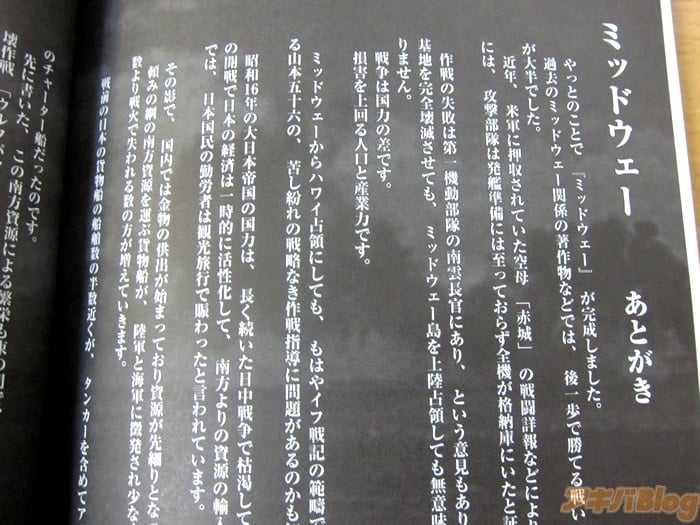 ミッドウェー　あとがき
やっとのことで『ミッドウェー』が完成しました。
過去のミッドウェー関係の著作物などでは、後一歩で勝てる戦い
が大半でした。
近年、米軍に押収されていた空母「赤城」の戦闘詳報などによ
には、攻撃部隊は発艦準備には至っておらず全機が格納庫にいたと
作戦の失敗は第一機動部隊の南雲長官にあり、という意見もあり
基地を完全壊滅させても、ミッドウェー島を上陸占領しても無意味
りません。
戦争は国力の差です。
損害を上回る人口と産業力です。
ミッドウェーからハワイ占領にしても、もはやイフ戦記の範疇で
る山本五十六の、苦し紛れの戦略なき作戦指導に問題があるのかも
昭和16年の大日本帝国の国力は、長く続いた日中戦争で枯渇して
の開戦で日本の経済は一時的に活性化して、南方よりの資源の輸
では、日本国民の勤労者は観光旅行で賑わったと言われています。
その影で、国内では金物の供出が始まっており資源が先細りとな
頼みの綱の南方資源を運ぶ貨物船が、陸軍と海軍に徴発され少な
数より戦火で失われる数の方が増えていきます。
戦前の日本の貨物船の船舶数の半数近くが、タンカーを含めてア
のチャーター船だったのです。
先に書いた、この南方資源による繁栄も
壊作戦「ウルフパ
アキバBlog